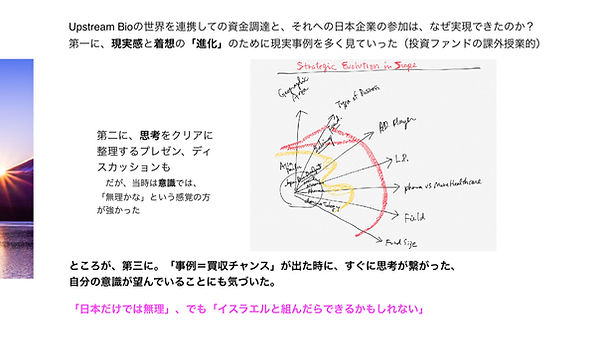 Upstream Bioの世界を連携しての資金調達と、それへの日本企業の参加は、なぜ実現できたのか？
第一に、現実感と着想の「進化」のために現実事例を多く見ていった（投資ファンドの課外授業的）
Strategic Evolution in Scope
Geographic
Area
Type of Partners
第二に、思考をクリアに
整理するプレゼン、ディ
スカッションも
だが、当時は意識では、
「無理かな」という感覚の方
が強かった
Player
L.P.
pharma vs More Healthcare
Field
Fund Size
ところが、第三に。「事例＝買収チャンス」が出た時に、すぐに思考が繋がった、
自分の意識が望んでいることにも気づいた。
「日本だけでは無理」、でも「イスラエルと組んだらできるかもしれない」